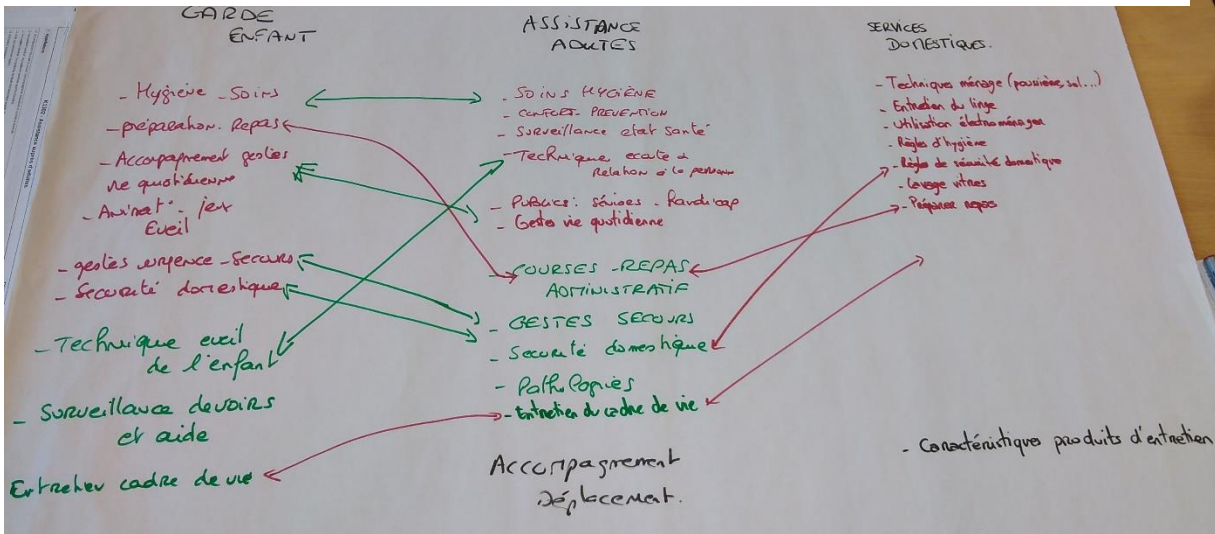 GARDE
ENFANT
- Hygiène - Soins
- préparation. Repas
- Accompagnement gestes
vie quotidienne
- Animat°. jeux
Eveil
- gestes urgence - Secours
- Sécurité domestique
- Technique eveil
de l'enfant
- Surveillance devoirs
et aide
Entretien cadre de vie
ASSISTANCE
ADULTES
- SOINS HYGIÈNE
- CONFORT - PREVENTION
- Surveillance etat santé
- Technique ecoute &
Relation à la personne
- PUBLICS : Séniors - Handicap
- Gestes vie quotidienne
- COURSES - REPAS
ADMINISTRATIF
- GESTES SECOURS
- Securité domestique
- Pathologies
- Entretien du cadre de vie
Accompagnement
Déplacement.
SERVICES
DOMESTIQUES.
- Techniques ménage (poussière, sol...)
- Entretien du linge
- Utilisation électroménager
- Règles d'hygiène
- Règles de sécurité domestique
- Lavage vitres
- Préparer repas
- Caractéristiques produits d'entretien